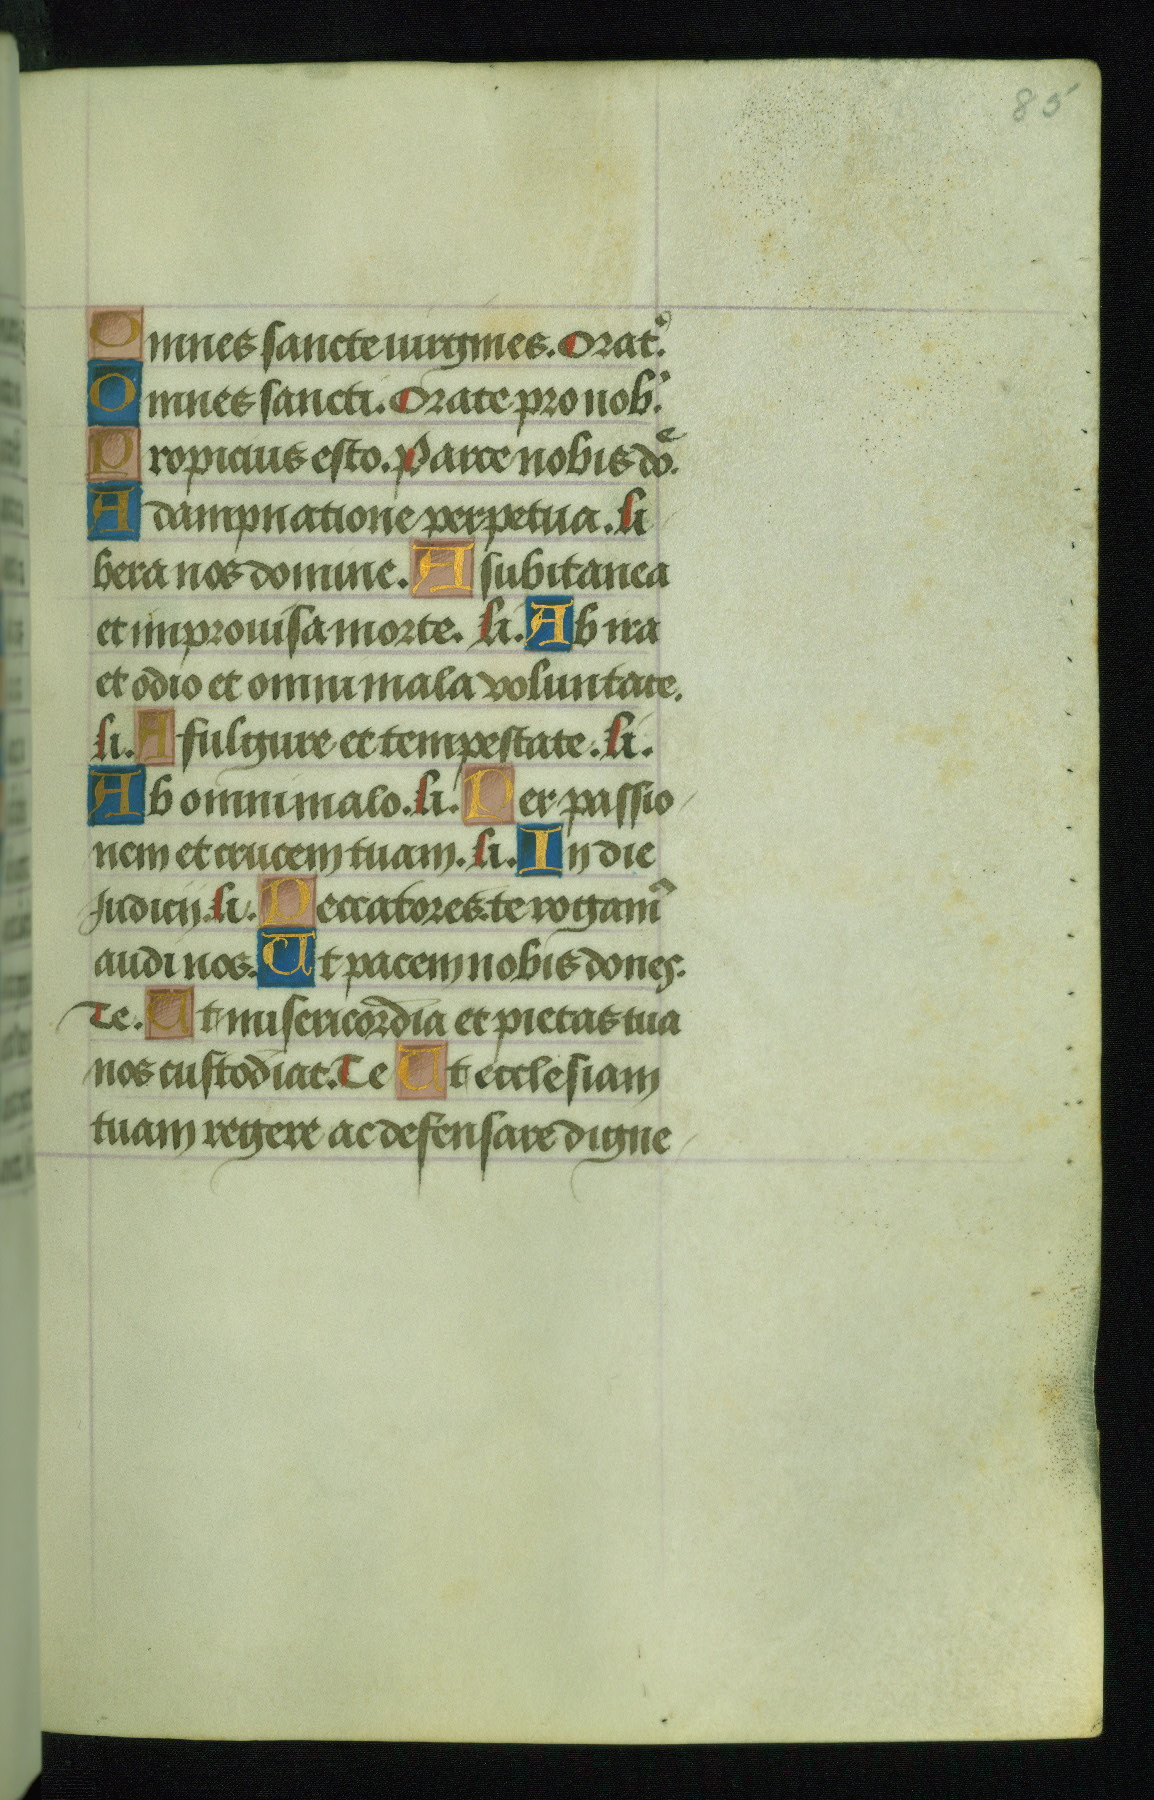 85
Omnes sancte uirgines. Orat.
Omnes sancti. Orate pro nob.
Propicius esto. Parce nobis do^e.
A dampnatione perpetua. li
bera nos domine. A subitanea
et improuisa morte. li. Ab ira
et odio et omni mala voluntate.
li. A fulgure et tempestate. li.
Ab omni malo. li. Per passio
nem et crucem tuam. li. In die
Judicij. li. Peccatores. te rogam⁹
audi nos. Ut pacem nobis dones.
Te. Ut misericordia et pietas tua
nos custodiat. Te Ut ecclesiam
tuam regere ac defensare digne